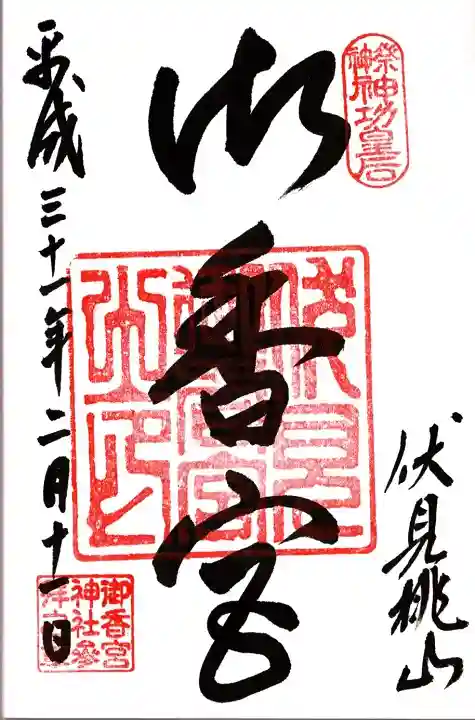 祭神
神功皇后
伏見桃山
御香宮
平成三十一年二月十一日
御香宮
神社参
拝之